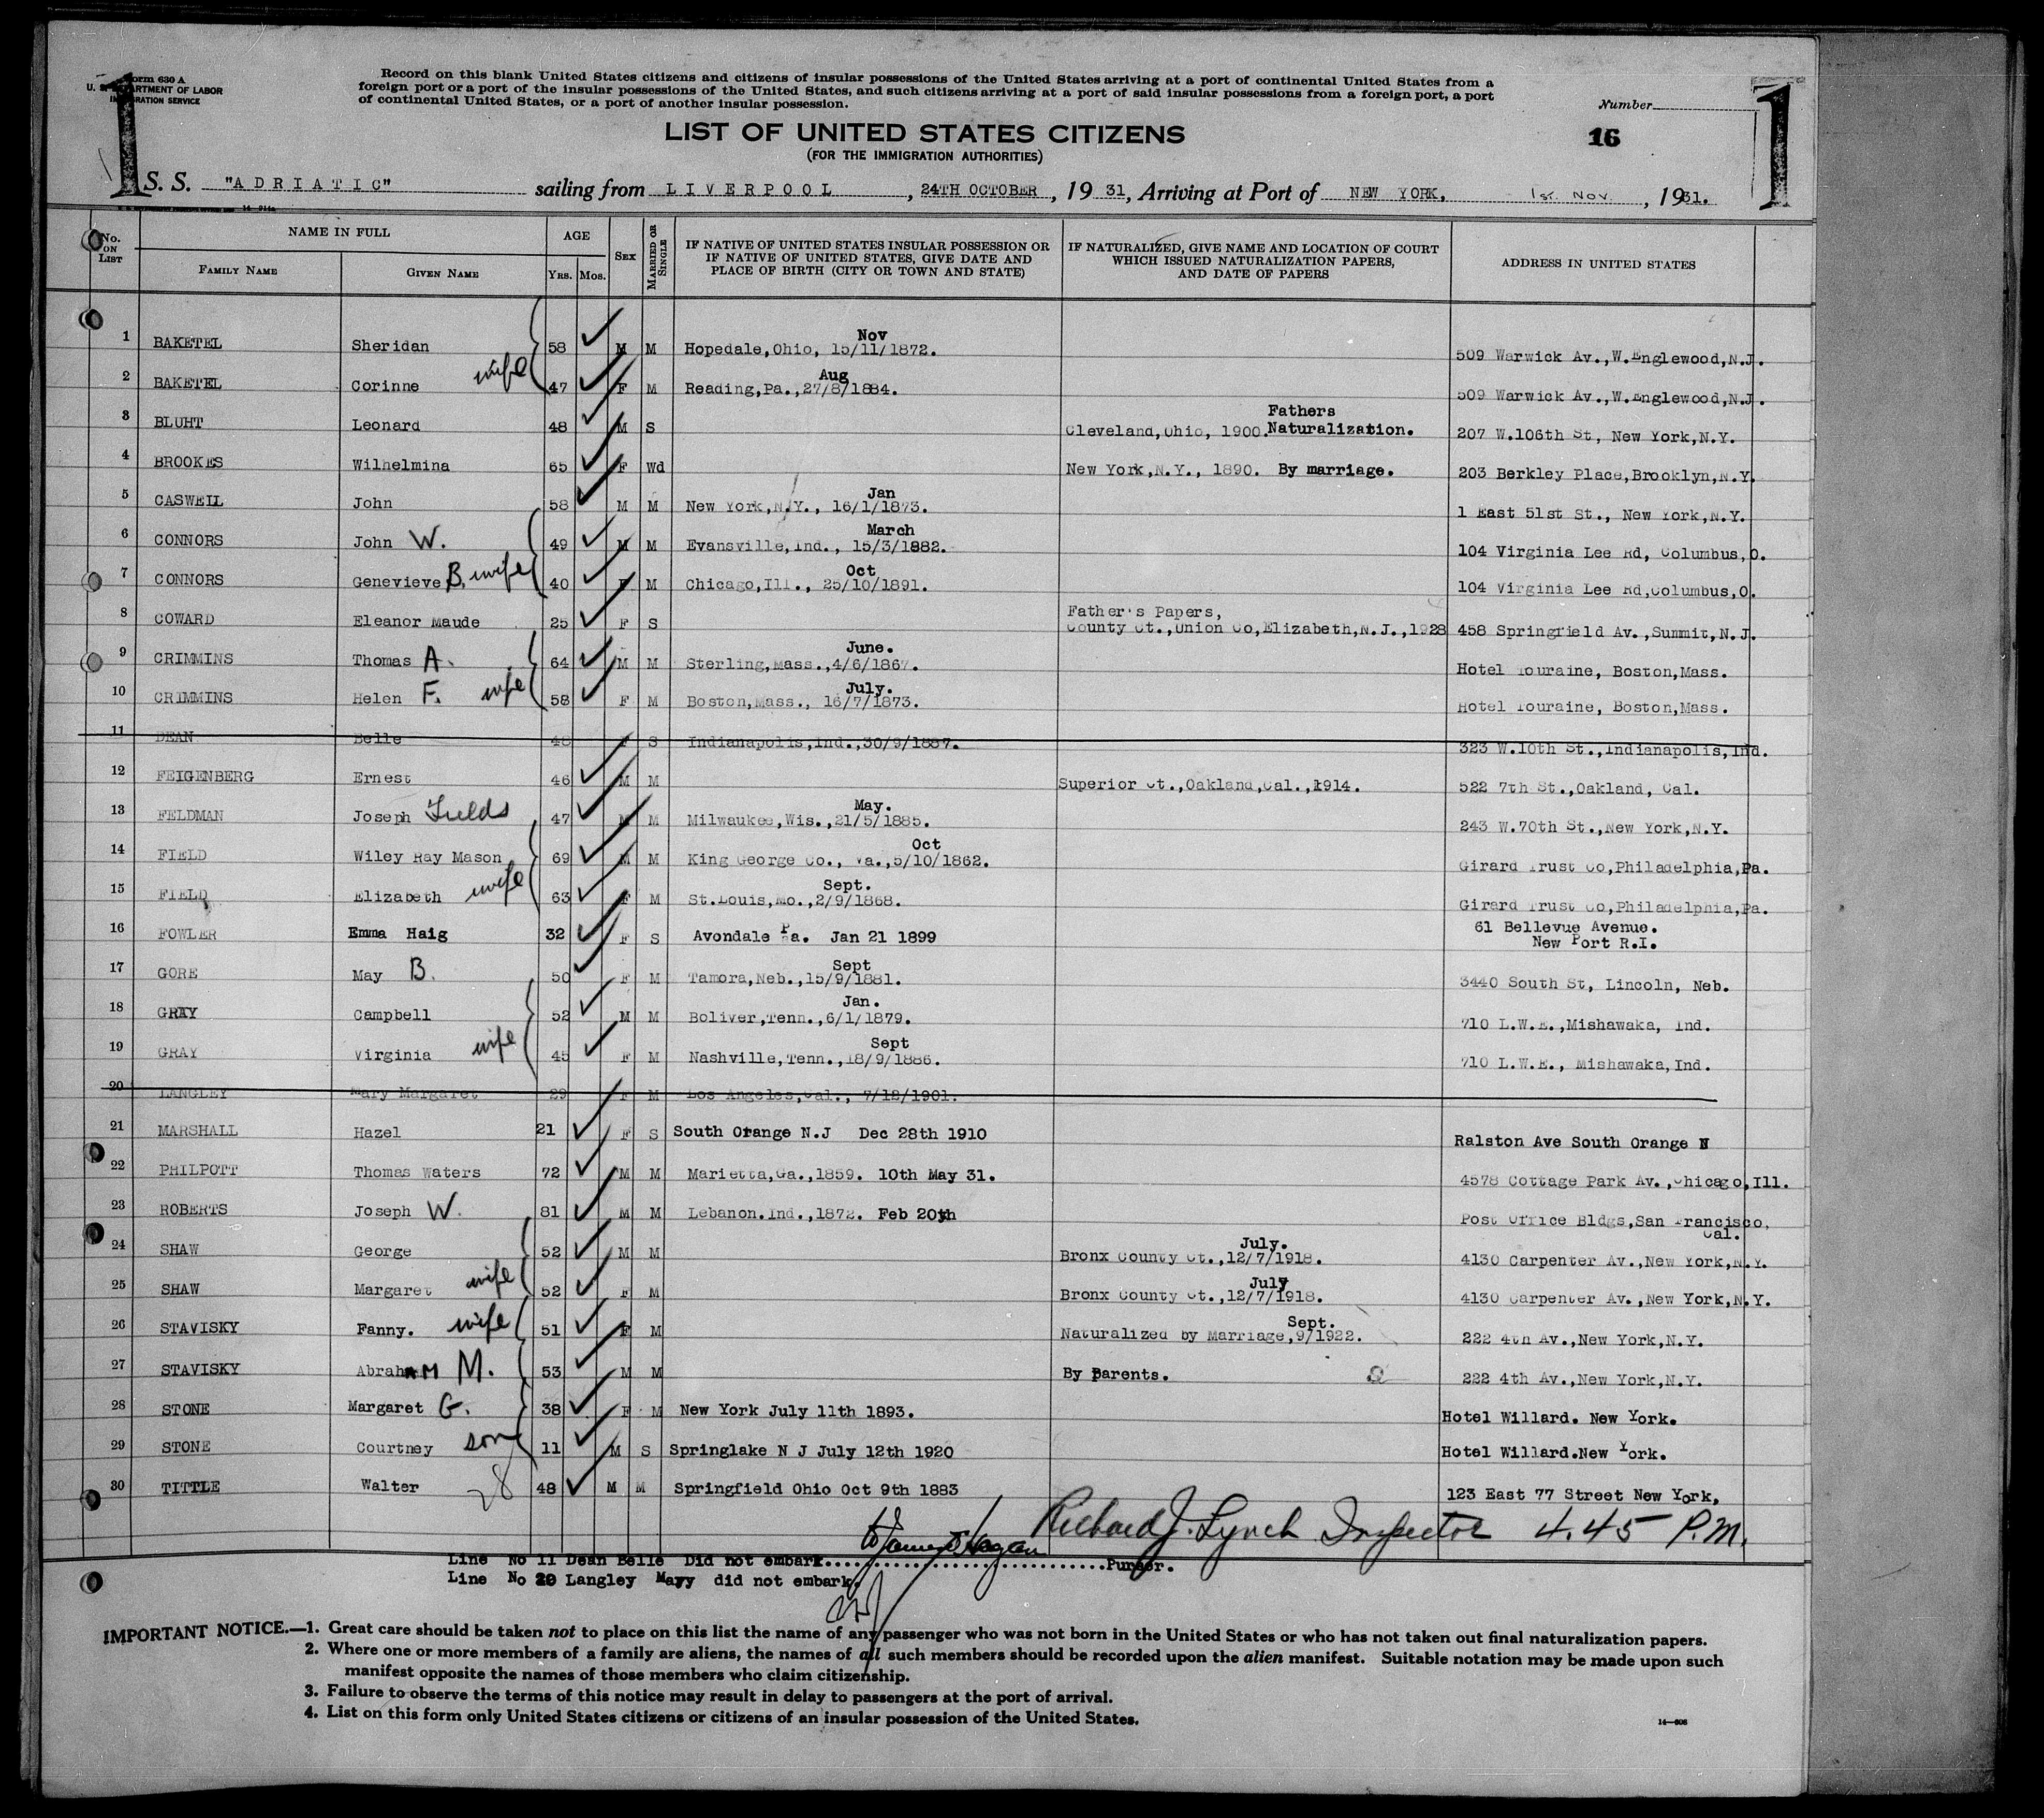 Form 630 A
U. S. DEPARTMENT OF LABOR
IMMIGRATION SERVICE
1
Record on this blank United States citizens and citizens of insular possessions of the United States arriving at a port of continental United States from a
foreign port or a port of the insular possessions of the United States, and such citizens arriving at a port of said insular possessions from a foreign port, a port
of continental United States, or a port of another insular possession.
Number
16
1
LIST OF UNITED STATES CITIZENS
(FOR THE IMMIGRATION AUTHORITIES)
S. S. "ADRIATIC" sailing from LIVERPOOL, 24TH OCTOBER, 1931, Arriving at Port of NEW YORK, 1st Nov., 1931.
No. ON LIST
NAME IN FULL
FAMILY NAME GIVEN NAME
AGE
YRS. MOS.
SEX
MARRIED OR SINGLE
IF NATIVE OF UNITED STATES INSULAR POSSESSION OR
IF NATIVE OF UNITED STATES, GIVE DATE AND
PLACE OF BIRTH (CITY OR TOWN AND STATE)
IF NATURALIZED, GIVE NAME AND LOCATION OF COURT
WHICH ISSUED NATURALIZATION PAPERS,
AND DATE OF PAPERS
ADDRESS IN UNITED STATES
1 BAKETEL Sheridan 58 M M Hopedale,Ohio, 15/11/1872. Nov 509 Warwick Av.,W.Englewood,N.J.
2 BAKETEL Corinne wife 47 F M Reading,Pa.,27/8/1884. Aug 509 Warwick Av.,W.Englewood,N.J.
3 BLUHT Leonard 48 M S Cleveland,Ohio, 1900. Fathers Naturalization. 207 W.106th St, New York,N.Y.
4 BROOKES Wilhelmina 65 F Wd New York,N.Y., 1890. By marriage. 203 Berkley Place,Brooklyn,N.Y.
5 CASWELL John 58 M M New York,N.Y., 16/1/1873. Jan 1 East 51st St., New York,N.Y.
6 CONNORS John W. 49 M M Evansville,Ind., 15/3/1882. March 104 Virginia Lee Rd, Columbus,O.
7 CONNORS Genevieve B. wife 40 F M Chicago,Ill., 25/10/1891. Oct 104 Virginia Lee Rd,Columbus,O.
8 COWARD Eleanor Maude 25 F S Father's Papers, County Ct.,Union Co,Elizabeth,N.J.,1928 458 Springfield Av.,Summit,N.J.
9 CRIMMINS Thomas A. 64 M M Sterling,Mass.,4/6/1867. June. Hotel Touraine, Boston,Mass.
10 CRIMMINS Helen F. wife 58 F M Boston,Mass., 16/7/1873. July. Hotel Touraine, Boston,Mass.
11 DEAN Belle 48 F S Indianapolis,Ind.,30/9/1887. 323 W.10th St.,Indianapolis,Ind.
12 FEIGENBERG Ernest 46 M M Superior Ct.,Oakland,Cal.,1914. 522 7th St.,Oakland, Cal.
13 FELDMAN Joseph Fields 47 M M Milwaukee,Wis.,21/5/1885. May. 243 W.70th St.,New York,N.Y.
14 FIELD Wiley Ray Mason 69 M M King George Co., Va.,5/10/1862. Oct Girard Trust Co,Philadelphia,Pa.
15 FIELD Elizabeth wife 63 F M St.Louis,Mo.,2/9/1868. Sept. Girard Trust Co,Philadelphia,Pa.
16 FOWLER Emma Haig 32 F S Avondale Pa. Jan 21 1899 61 Bellevue Avenue. New Port R.I.
17 GORE May B. 50 F M Tamora,Neb.,15/9/1881. Sept 3440 South St, Lincoln, Neb.
18 GRAY Campbell 52 M M Boliver,Tenn.,6/1/1879. Jan. 710 L.W.E.,Mishawaka, Ind.
19 GRAY Virginia wife 45 F M Nashville,Tenn.,18/9/1886. Sept 710 L.W.E., Mishawaka,Ind.
20 LANGLEY Mary Margaret 29 F M Los Angeles,Cal., 7/12/1901.
21 MARSHALL Hazel 21 F S South Orange N.J Dec 28th 1910 Ralston Ave South Orange N
22 PHILPOTT Thomas Waters 72 M M Marietta,Ga.,1859. 10th May 31. 4578 Cottage Park Av.,Chicago,Ill.
23 ROBERTS Joseph W. 81 M M Lebanon.Ind.,1872. Feb 20th Post Office Bldgs,San Francisco, Cal.
24 SHAW George 52 M M Bronx County Ct.,12/7/1918. July. 4130 Carpenter Av.,New York,N.Y.
25 SHAW Margaret wife 52 F M Bronx County Ct.,12/7/1918. July 4130 Carpenter Av.,New York,N.Y.
26 STAVISKY Fanny. wife 51 F M Naturalized by Marriage,9/1922. Sept. 222 4th Av.,New York,N.Y.
27 STAVISKY Abraham M. 53 M M By parents. 222 4th Av.,New York,N.Y.
28 STONE Margaret G. 38 F M New York July 11th 1893. Hotel Willard. New York.
29 STONE Courtney son 11 M S Springlake N J July 12th 1920 Hotel Willard.New York.
30 TITTLE Walter 28 48 M M Springfield Ohio Oct 9th 1883 123 East 77 Street New York,
Richard J. Lynch Inspector 4.45 P.M.
Line No 11 Dean Belle Did not embark. Purser.
Line No 20 Langley Mary did not embark.
IMPORTANT NOTICE.—1. Great care should be taken not to place on this list the name of any passenger who was not born in the United States or who has not taken out final naturalization papers.
2. Where one or more members of a family are aliens, the names of all such members should be recorded upon the alien manifest. Suitable notation may be made upon such
manifest opposite the names of those members who claim citizenship.
3. Failure to observe the terms of this notice may result in delay to passengers at the port of arrival.
4. List on this form only United States citizens or citizens of an insular possession of the United States.
14—606